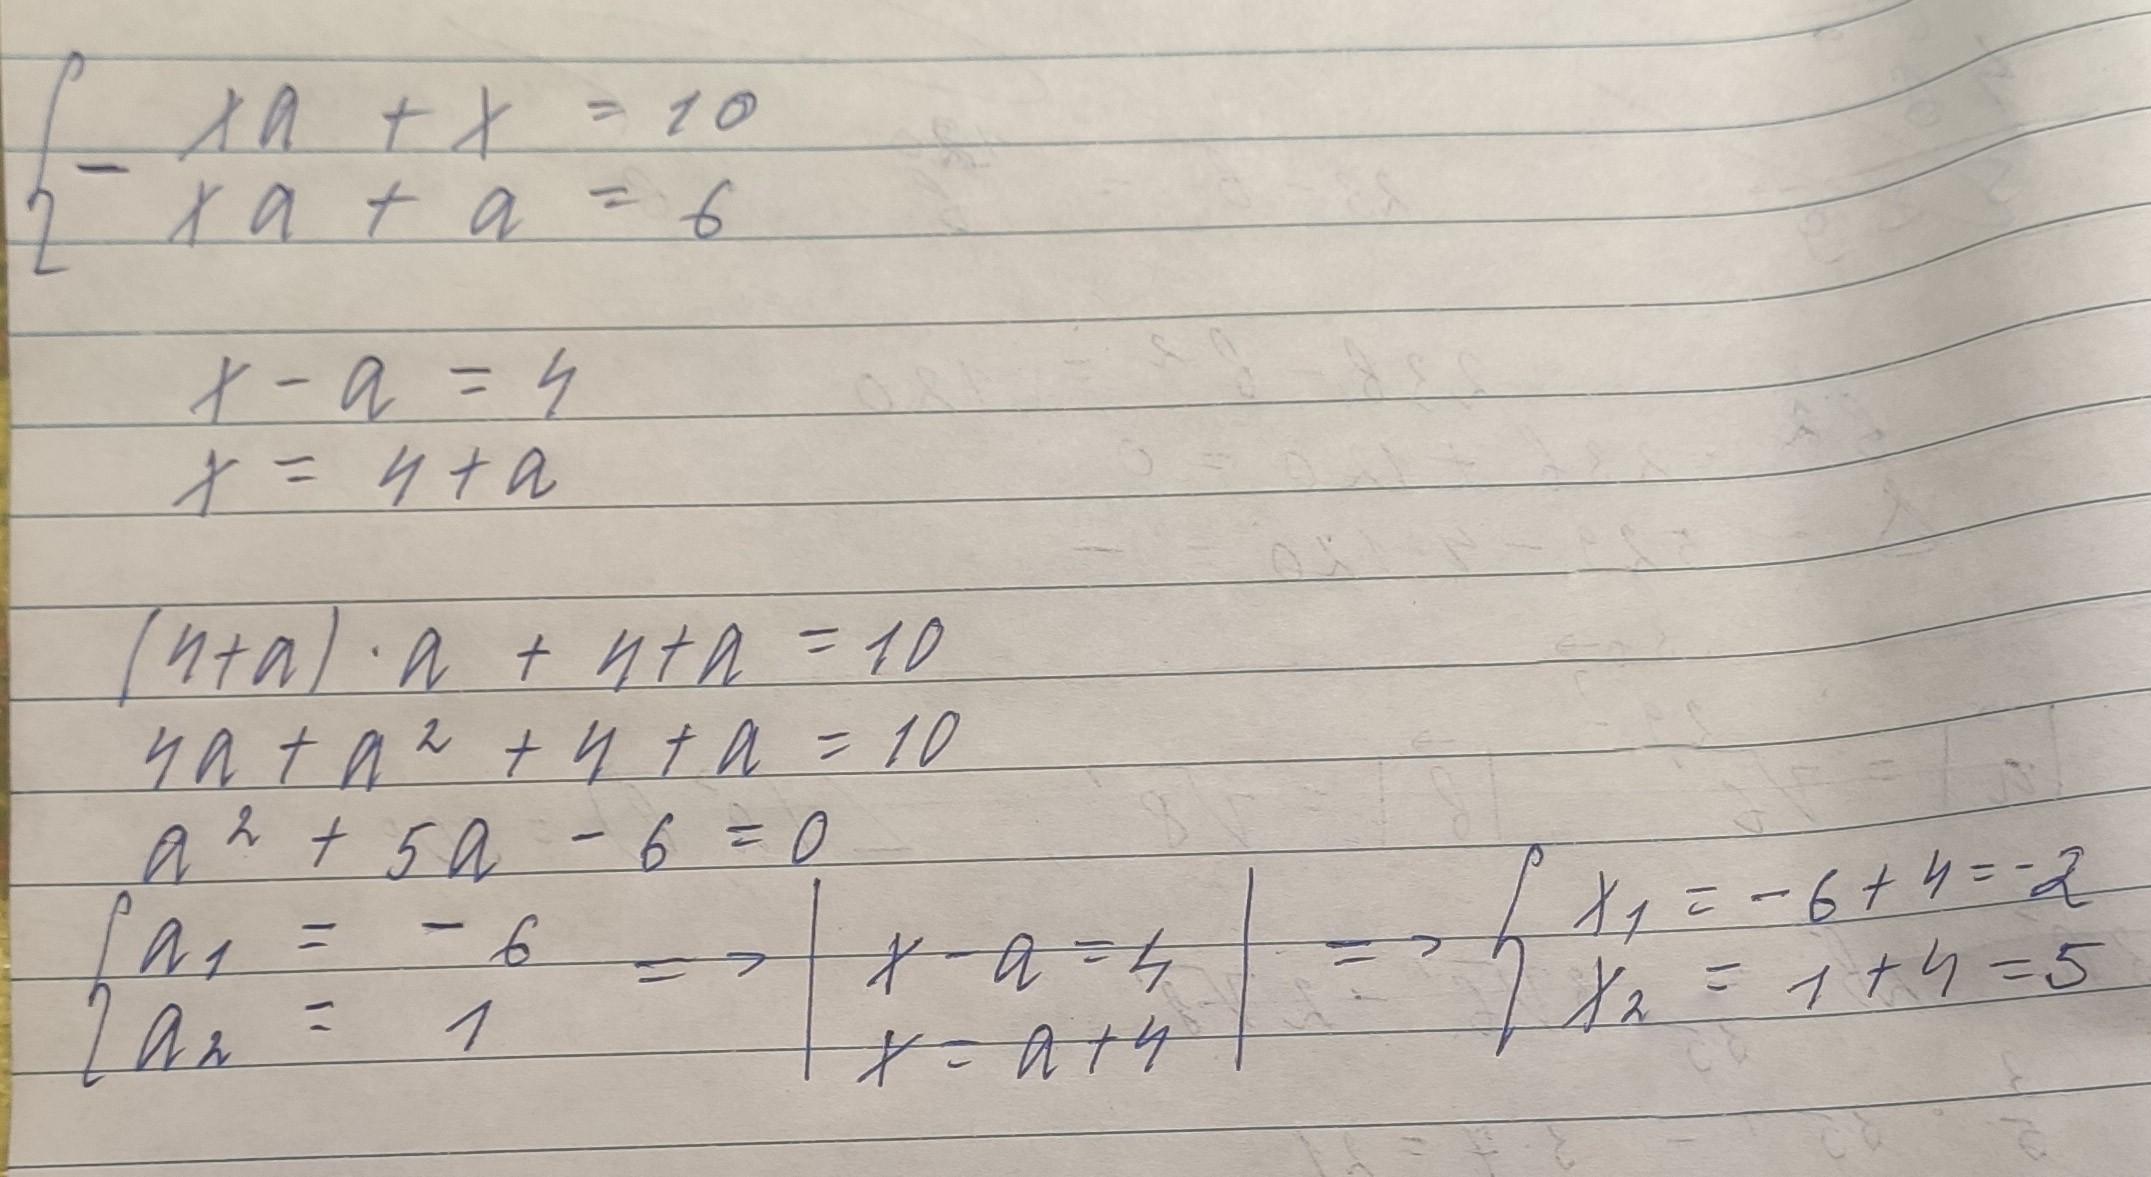 xa + x = 10
xa + a = 6
x - a = 4
x = 4 + a
(4+a) · a + 4+a = 10
4a + a² + 4 + a = 10
a² + 5a - 6 = 0
{ a₁ = -6 => | x - a = 4 | => { x₁ = -6 + 4 = -2
a₂ = 1 x = a + 4 x₂ = 1 + 4 = 5